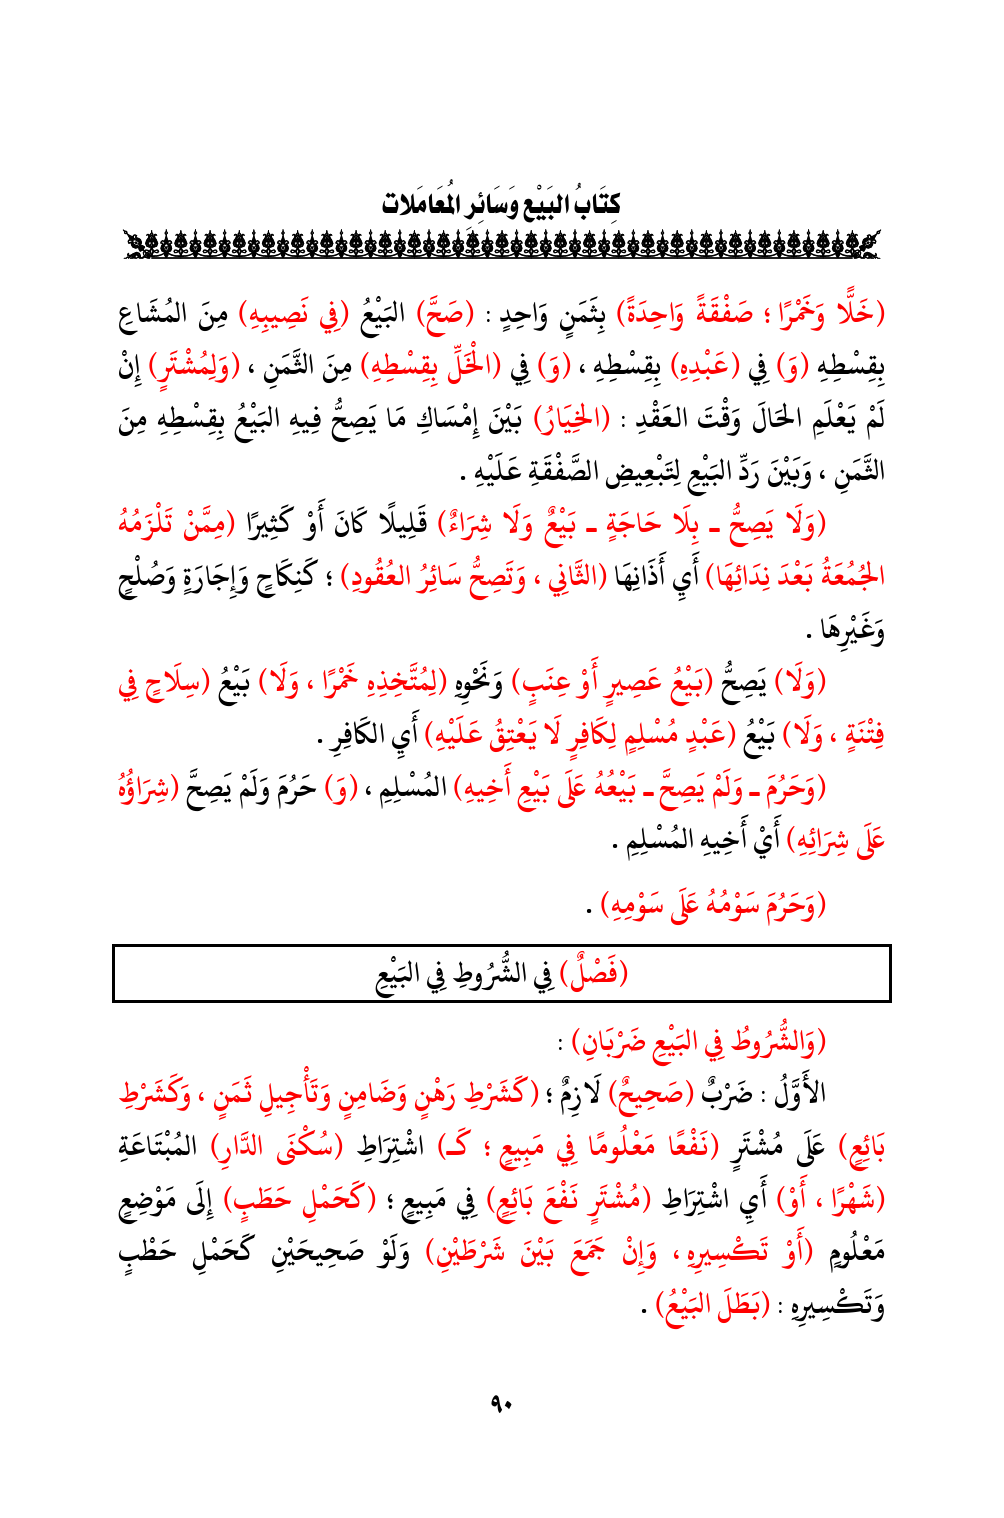 كِتَابُ البَيْعِ وَسَائِرِ المُعَامَلات
(خَلًّا وَخَمْرًا ؛ صَفْقَةً وَاحِدَةً) بِثَمَنٍ وَاحِدٍ : (صَحَّ) البَيْعُ (فِي نَصِيبِهِ) مِنَ المُشَاعِ
بِقِسْطِهِ (وَ) فِي (عَبْدِهِ) بِقِسْطِهِ ، (وَ) فِي (الْخَلِّ بِقِسْطِهِ) مِنَ الثَّمَنِ ، (وَلِمُشْتَرٍ) إِنْ
لَمْ يَعْلَمِ الحَالَ وَقْتَ العَقْدِ : (الخِيَارُ) بَيْنَ إِمْسَاكِ مَا يَصِحُّ فِيهِ البَيْعُ بِقِسْطِهِ مِنَ
الثَّمَنِ ، وَبَيْنَ رَدِّ البَيْعِ لِتَبْعِيضِ الصَّفْقَةِ عَلَيْهِ .
(وَلَا يَصِحُّ ـ بِلَا حَاجَةٍ ـ بَيْعٌ وَلَا شِرَاءٌ) قَلِيلًا كَانَ أَوْ كَثِيرًا (مِمَّنْ تَلْزَمُهُ
الجُمُعَةُ بَعْدَ نِدَائِهَا) أَيِ أَذَانِهَا (الثَّانِي ، وَتَصِحُّ سَائِرُ العُقُودِ) ؛ كَنِكَاحٍ وَإِجَارَةٍ وَصُلْحٍ
وَغَيْرِهَا .
(وَلَا) يَصِحُّ (بَيْعُ عَصِيرٍ أَوْ عِنَبٍ) وَنَحْوِهِ (لِمُتَّخِذِهِ خَمْرًا ، وَلَا) بَيْعُ (سِلَاحٍ فِي
فِتْنَةٍ ، وَلَا) بَيْعُ (عَبْدٍ مُسْلِمٍ لِكَافِرٍ لَا يَعْتِقُ عَلَيْهِ) أَيِ الكَافِرِ .
(وَحَرُمَ ـ وَلَمْ يَصِحَّ ـ بَيْعُهُ عَلَى بَيْعِ أَخِيهِ) المُسْلِمِ ، (وَ) حَرُمَ وَلَمْ يَصِحَّ (شِرَاؤُهُ
عَلَى شِرَائِهِ) أَيْ أَخِيهِ المُسْلِمِ .
(وَحَرُمَ سَوْمُهُ عَلَى سَوْمِهِ) .
(فَصْلٌ) فِي الشُّرُوطِ فِي البَيْعِ
(وَالشُّرُوطُ فِي البَيْعِ ضَرْبَانِ) :
الأَوَّلُ : ضَرْبٌ (صَحِيحٌ) لَازِمٌ ؛ (كَشَرْطِ رَهْنٍ وَضَامِنٍ وَتَأْجِيلِ ثَمَنٍ ، وَكَشَرْطِ
بَائِعٍ) عَلَى مُشْتَرٍ (نَفْعًا مَعْلُومًا فِي مَبِيعٍ ؛ كَـ) اشْتِرَاطِ (سُكْنَى الدَّارِ) المُبْتَاعَةِ
(شَهْرًا ، أَوْ) أَيِ اشْتِرَاطِ (مُشْتَرٍ نَفْعَ بَائِعٍ) فِي مَبِيعٍ ؛ (كَحَمْلِ حَطَبٍ) إِلَى مَوْضِعٍ
مَعْلُومٍ (أَوْ تَكْسِيرِهِ ، وَإِنْ جَمَعَ بَيْنَ شَرْطَيْنِ) وَلَوْ صَحِيحَيْنِ كَحَمْلِ حَطْبٍ
وَتَكْسِيرِهِ : (بَطَلَ البَيْعُ) .
٩٠